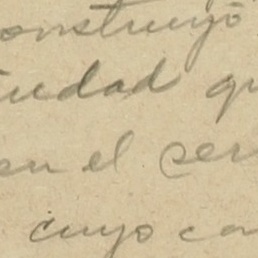 onstruyó
iudad qu
en el ser
cuyo con